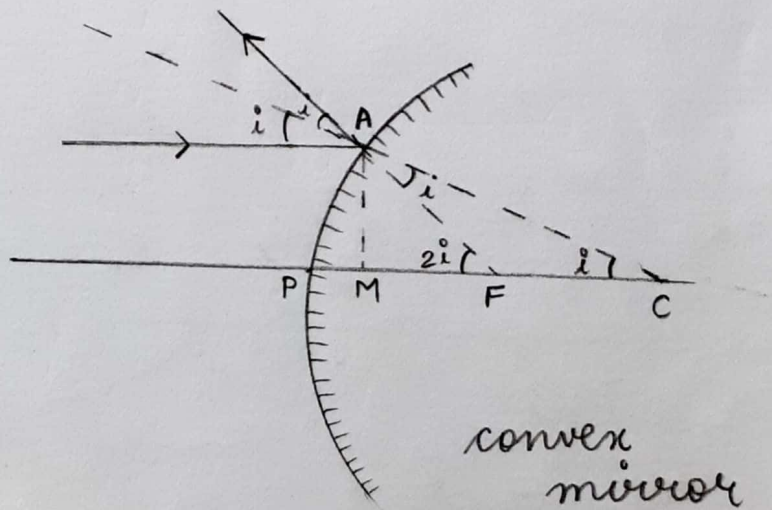 i i A
i
2i i
P M F C
convex
mirror